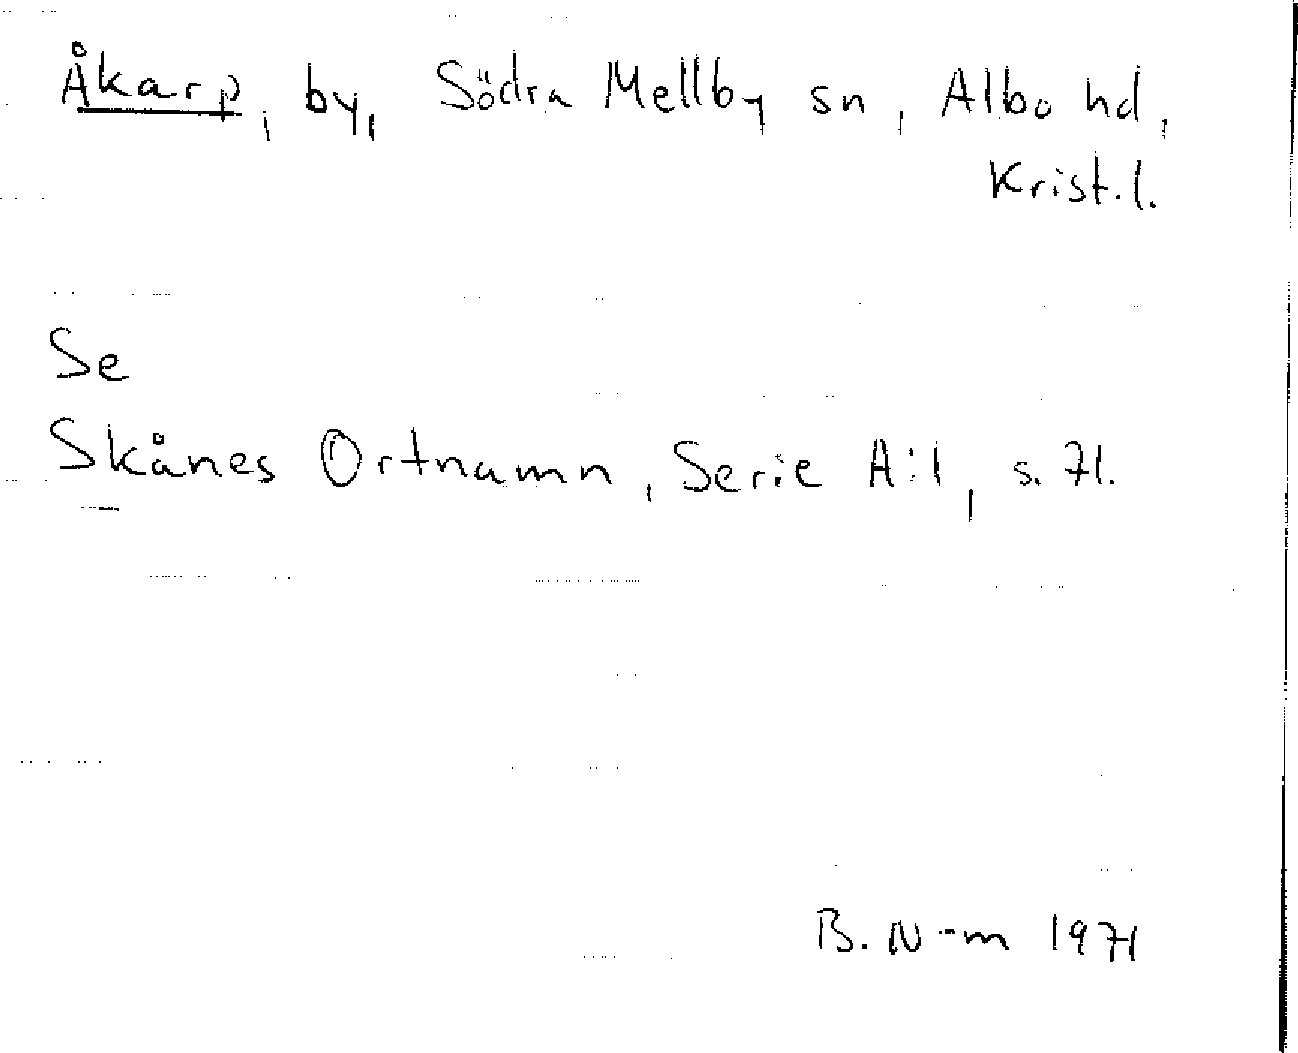 Åkarp, by, Södra Mellby sn, Albo hd,
Krist.l.
Se
Skånes Ortnamn, Serie A:1, s. 71.
B. N-m 1971